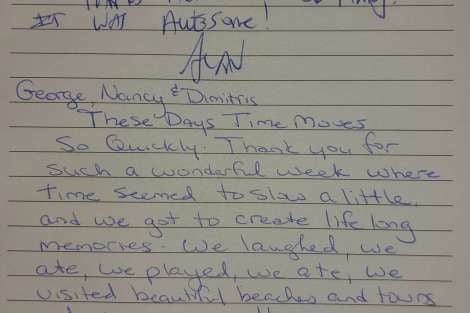 IT WAS
George, Nancy & Dimitris
These Days Time Moves
So Quickly. Thank you for
such a wonderful week where
time seemed to slow a little,
and we got to create life long
memories. We laughed, we
ate, we played, we ate, we
visited beautiful beaches and towns